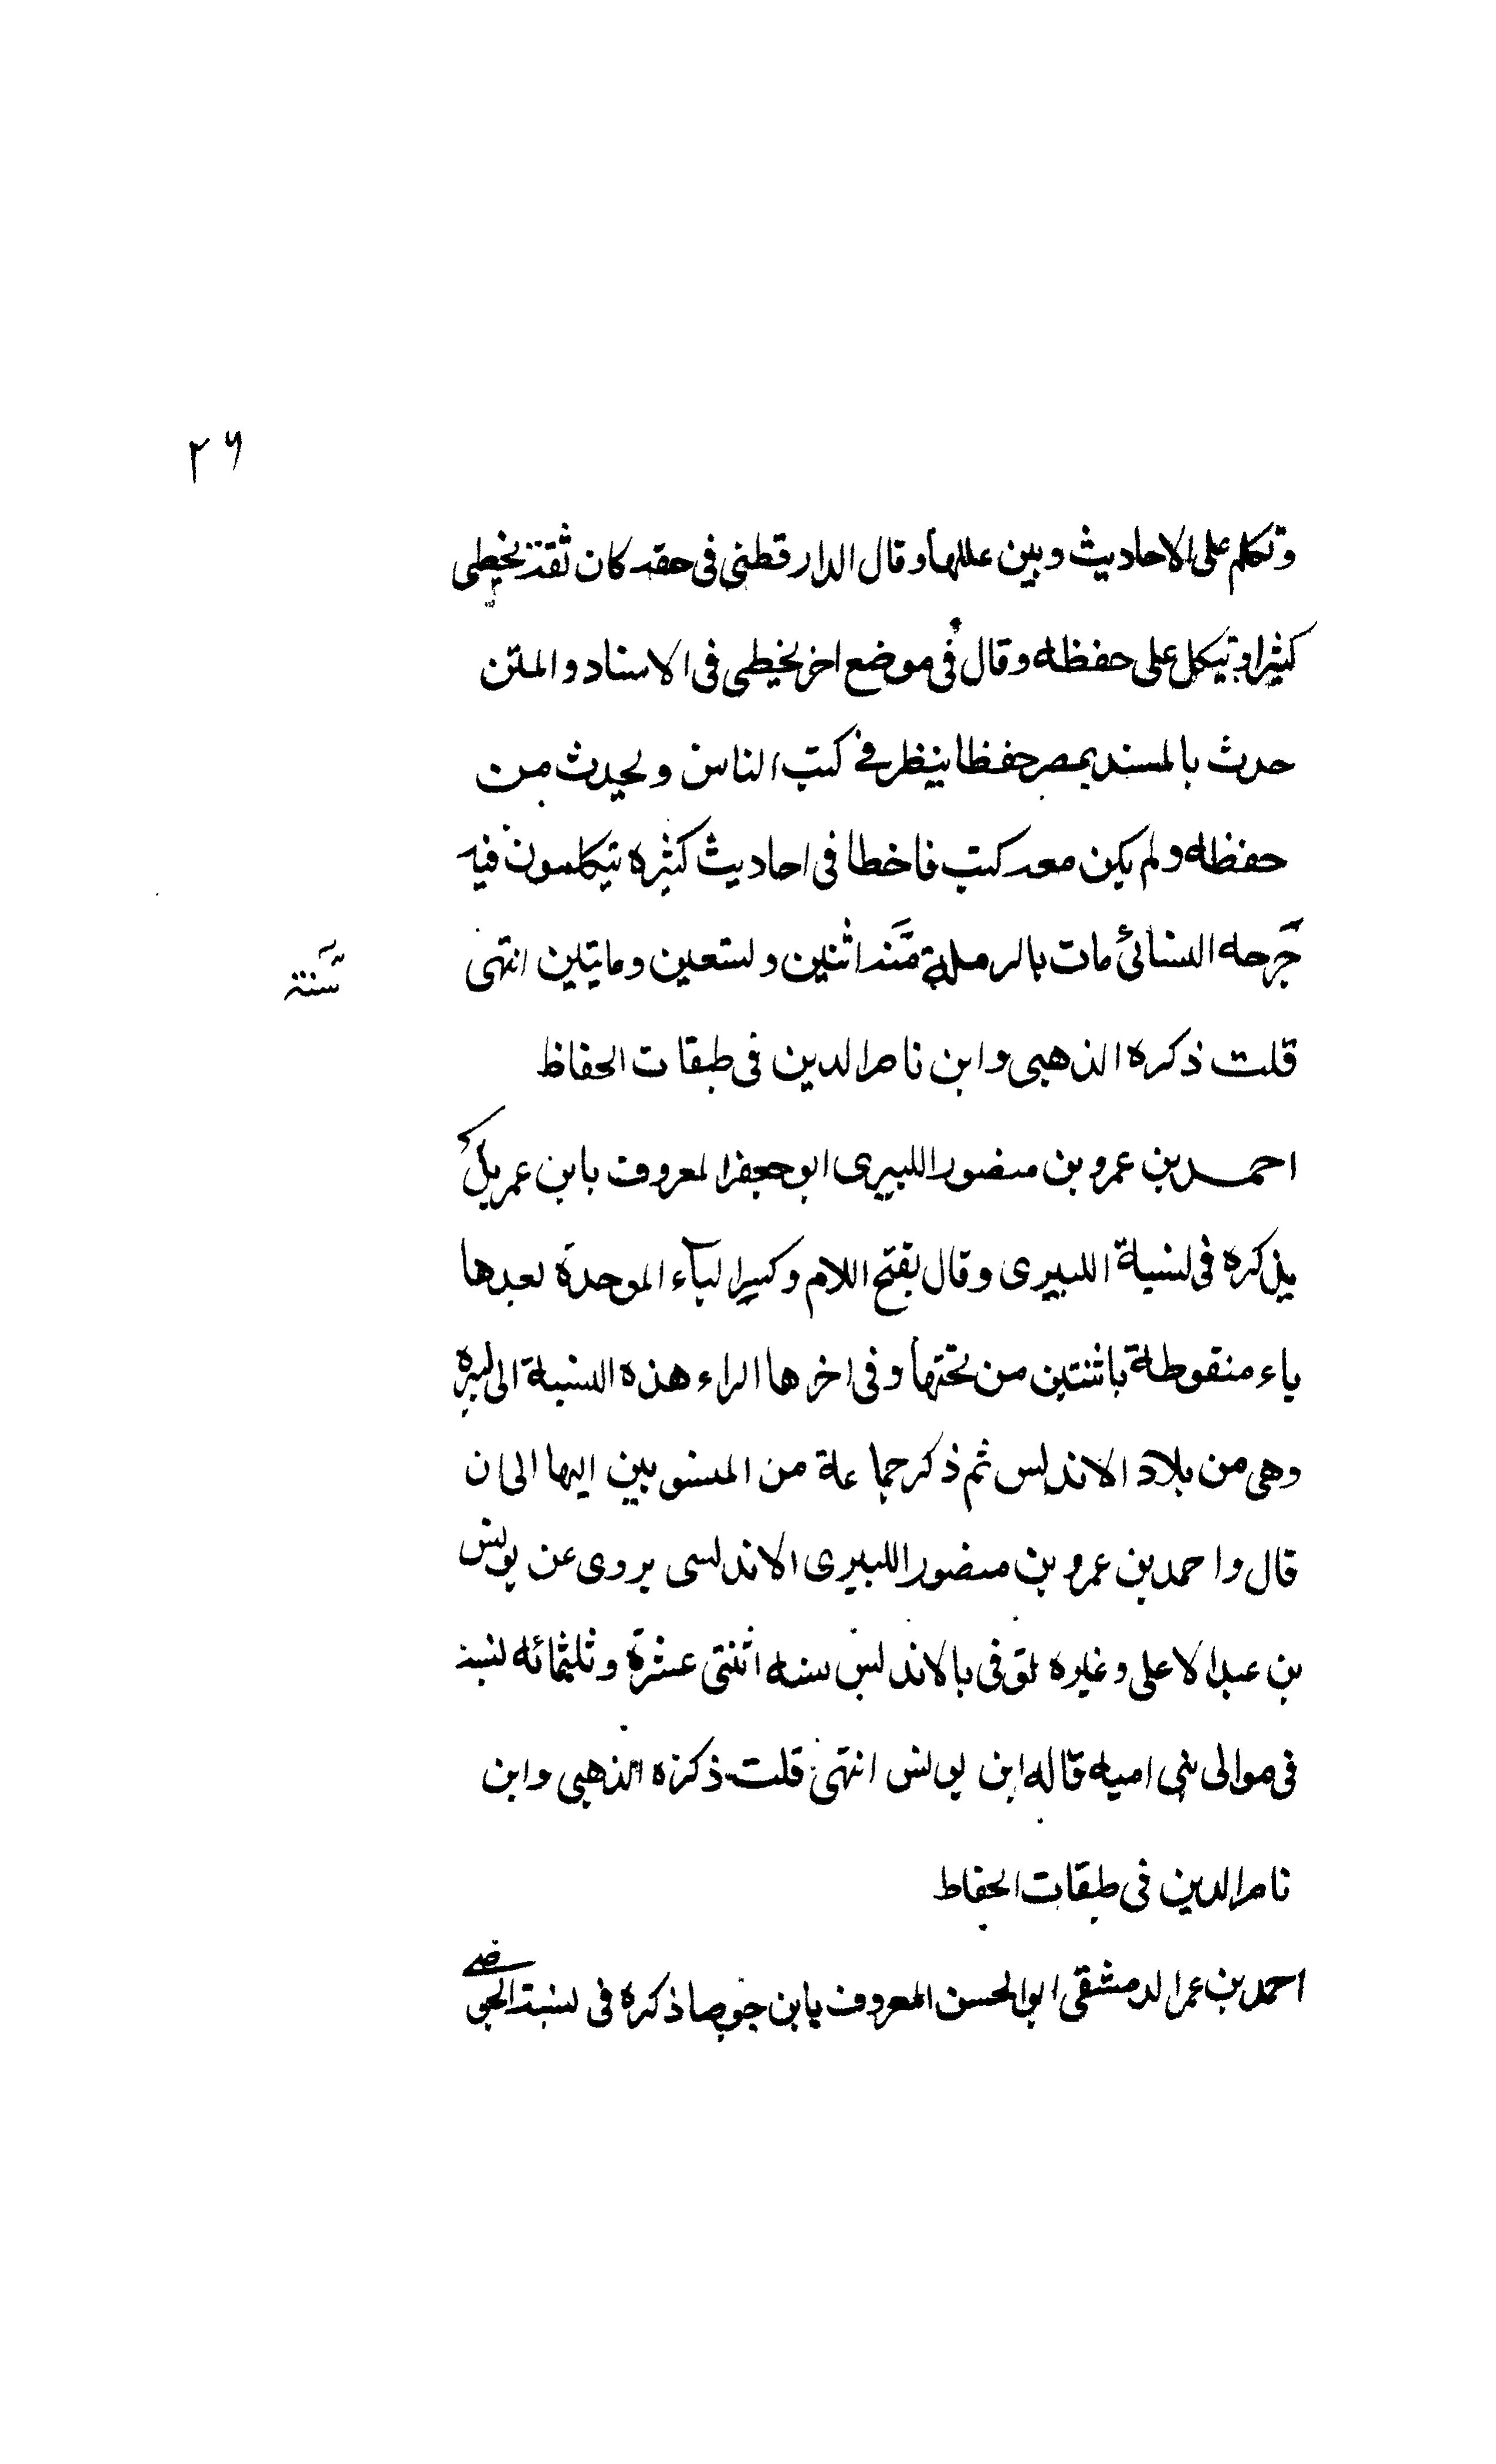 ٢٦
وتكلم على الاحاديث وبين عللها وقال الدارقطنى فى حقه كان ثقة يخطى
كثيرا ويتكل على حفظه وقال فى موضع اخر يخطى فى الاسناد والمتن
حدث بالمسند بمصر حفظا ينظر فى كتب الناس ويحدث من
حفظه ولم يكن معه كتب فاخطا فى احاديث كثيره يتكلمون فيه
جرحه النسائى مات بالرملة سنة اثنين وتسعين ومايتين انتهى
سنة
قلت ذكره الذهبى وابن ناصر الدين فى طبقات الحفاظ
احمد بن عمرو بن منصور اللبيرى ابو جعفر المعروف بابن عمريل
يذكره فى نسبة اللبيرى وقال بفتح اللام وكسر الباء الموحدة بعدها
ياء منقوطة باثنتين من تحتها وفى اخرها الراء هذه النسبة الى لبيره
وهى من بلاد الاندلس ثم ذكر جماعة من المنسوبين اليها الى ان
قال واحمد بن عمرو بن منصور اللبيرى الاندلسى يروى عن يونس
بن عبد الاعلى وغيره توفى بالاندلس سنه اثنتى عشرة وثلثمائه نسبه
فى موالى بنى اميه قاله ابن يونس انتهى قلت ذكره الذهبى وابن
ناصر الدين فى طبقات الحفاظ
احمد بن عمر الدمشقى ابو الحسن المعروف بابن جوصا ذكره فى نسبة الجوصى